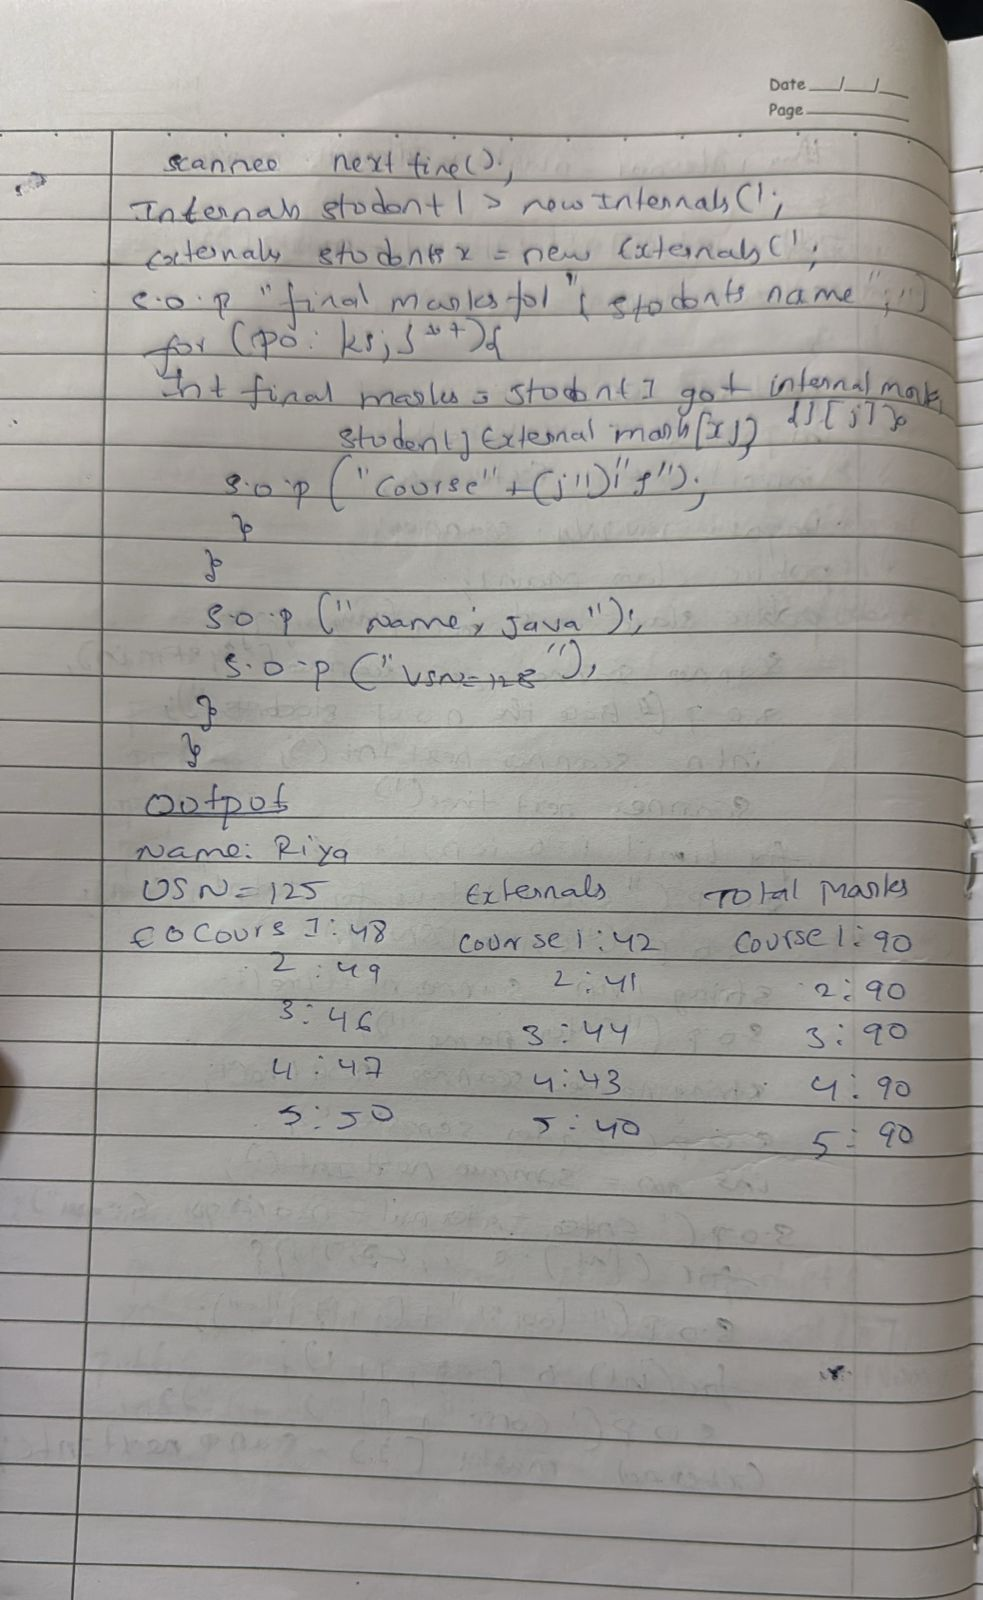 Date __/__/__
Page
scannee next fine();
Internals stodent1 > new Internals(1;
externals stodents x = new Externals(';
s.o.p "final marks fol "( stodents name ";")
for (po: ks; j++){
Int final masks = stodent1 got internal mark
student] External mark[xj] [j]}
s.o.p ("Course"+(j"1)
}
}
s.o.p ("Name; Java");
s.o.p ("USN=128");
}
}
Ootpot
Name: Riya
USN = 125 Externals Total Marks
Cours 1:48 Course 1:42 Course 1: 90
2:49 2:41 2:90
3:46 3:44 3:90
4:47 4:43 4:90
5:50 5:40 5:90